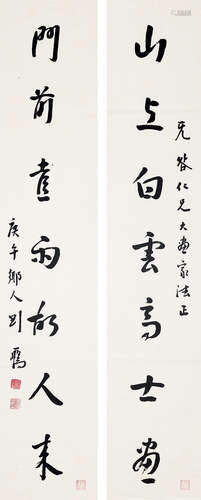 山上白雲高士畫
先發仁兄大畫家法正
門前直雨故人来
庚午鄉人劉